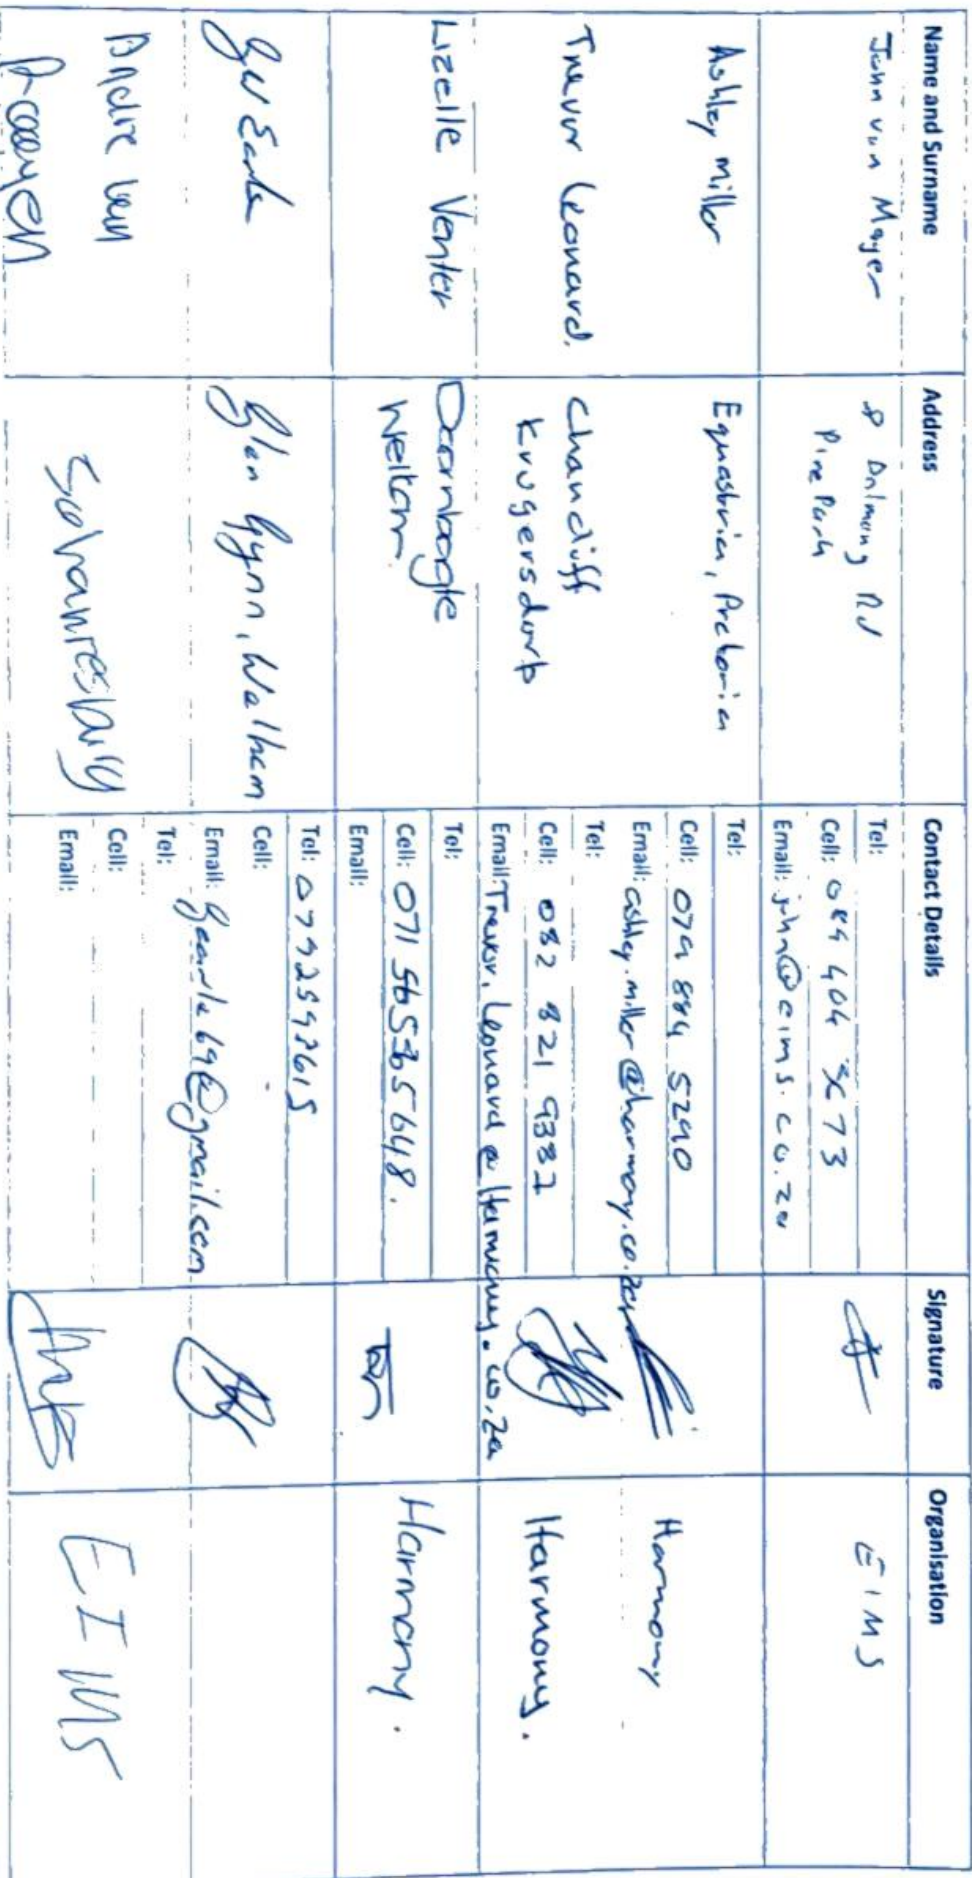 Name and Surname Address Contact Details Signature Organisation
John von Mayer
8 Dalmeny Rd
Pine Park
Tel:
Cell: 084 404
Email: john@eims.co.za
EIMS
Ashley Miller
Equestrian, Pretoria
Tel:
Cell: 079 884 5290
Email: ashley.miller@harmony.co.za
Harmony
Trevor Leonard.
Chancliff
Krugersdorp
Tel:
Cell: 082 821 9332
Email: Trevor.Leonard@Harmony.co.za
Harmony.
Lizelle Venter
Welkom
Tel:
Cell: 071 5655365648.
Email:
Harmony.
Glen Gynn, Welkom
Tel: 0792592615
Cell:
Email: gearle69@gmail.com
Andre van
Rooyen
Johannesburg
Tel:
Cell:
Email:
EIMS